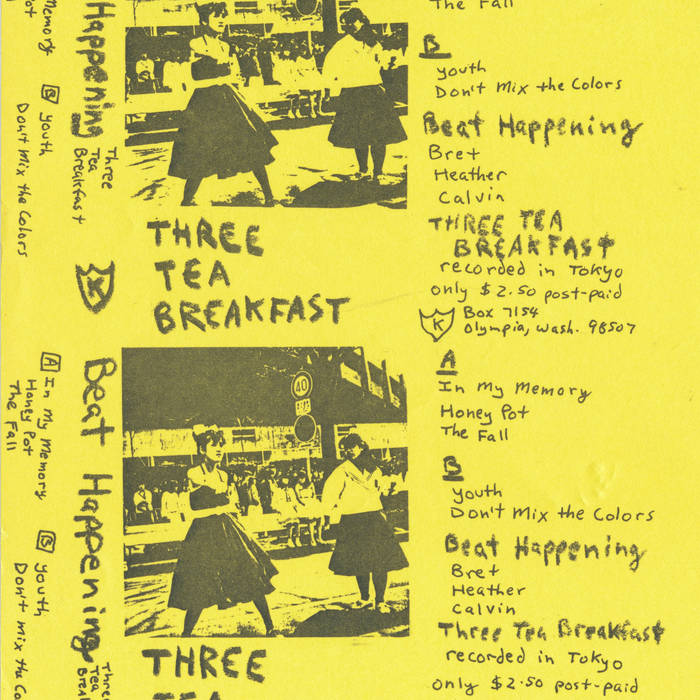 Memory
Pot
B Youth
Don't Mix the Colors
Happening
Three
Tea
Breakfast
K
THREE
TEA
BREAKFAST
The Fall
B
Youth
Don't Mix the Colors
Beat Happening
Bret
Heather
Calvin
THREE TEA
BREAKFAST
recorded in Tokyo
only $2.50 post-paid
K
Box 7154
Olympia, Wash. 98507
A In My Memory
Honey Pot
The Fall
B Youth
Don't Mix the Co
Beat Happening
Three
Tea
Brea
40
THREE
TEA
A
In My Memory
Honey Pot
The Fall
B
Youth
Don't Mix the Colors
Beat Happening
Bret
Heather
Calvin
Three Tea Breakfast
recorded in Tokyo
only $2.50 post-paid